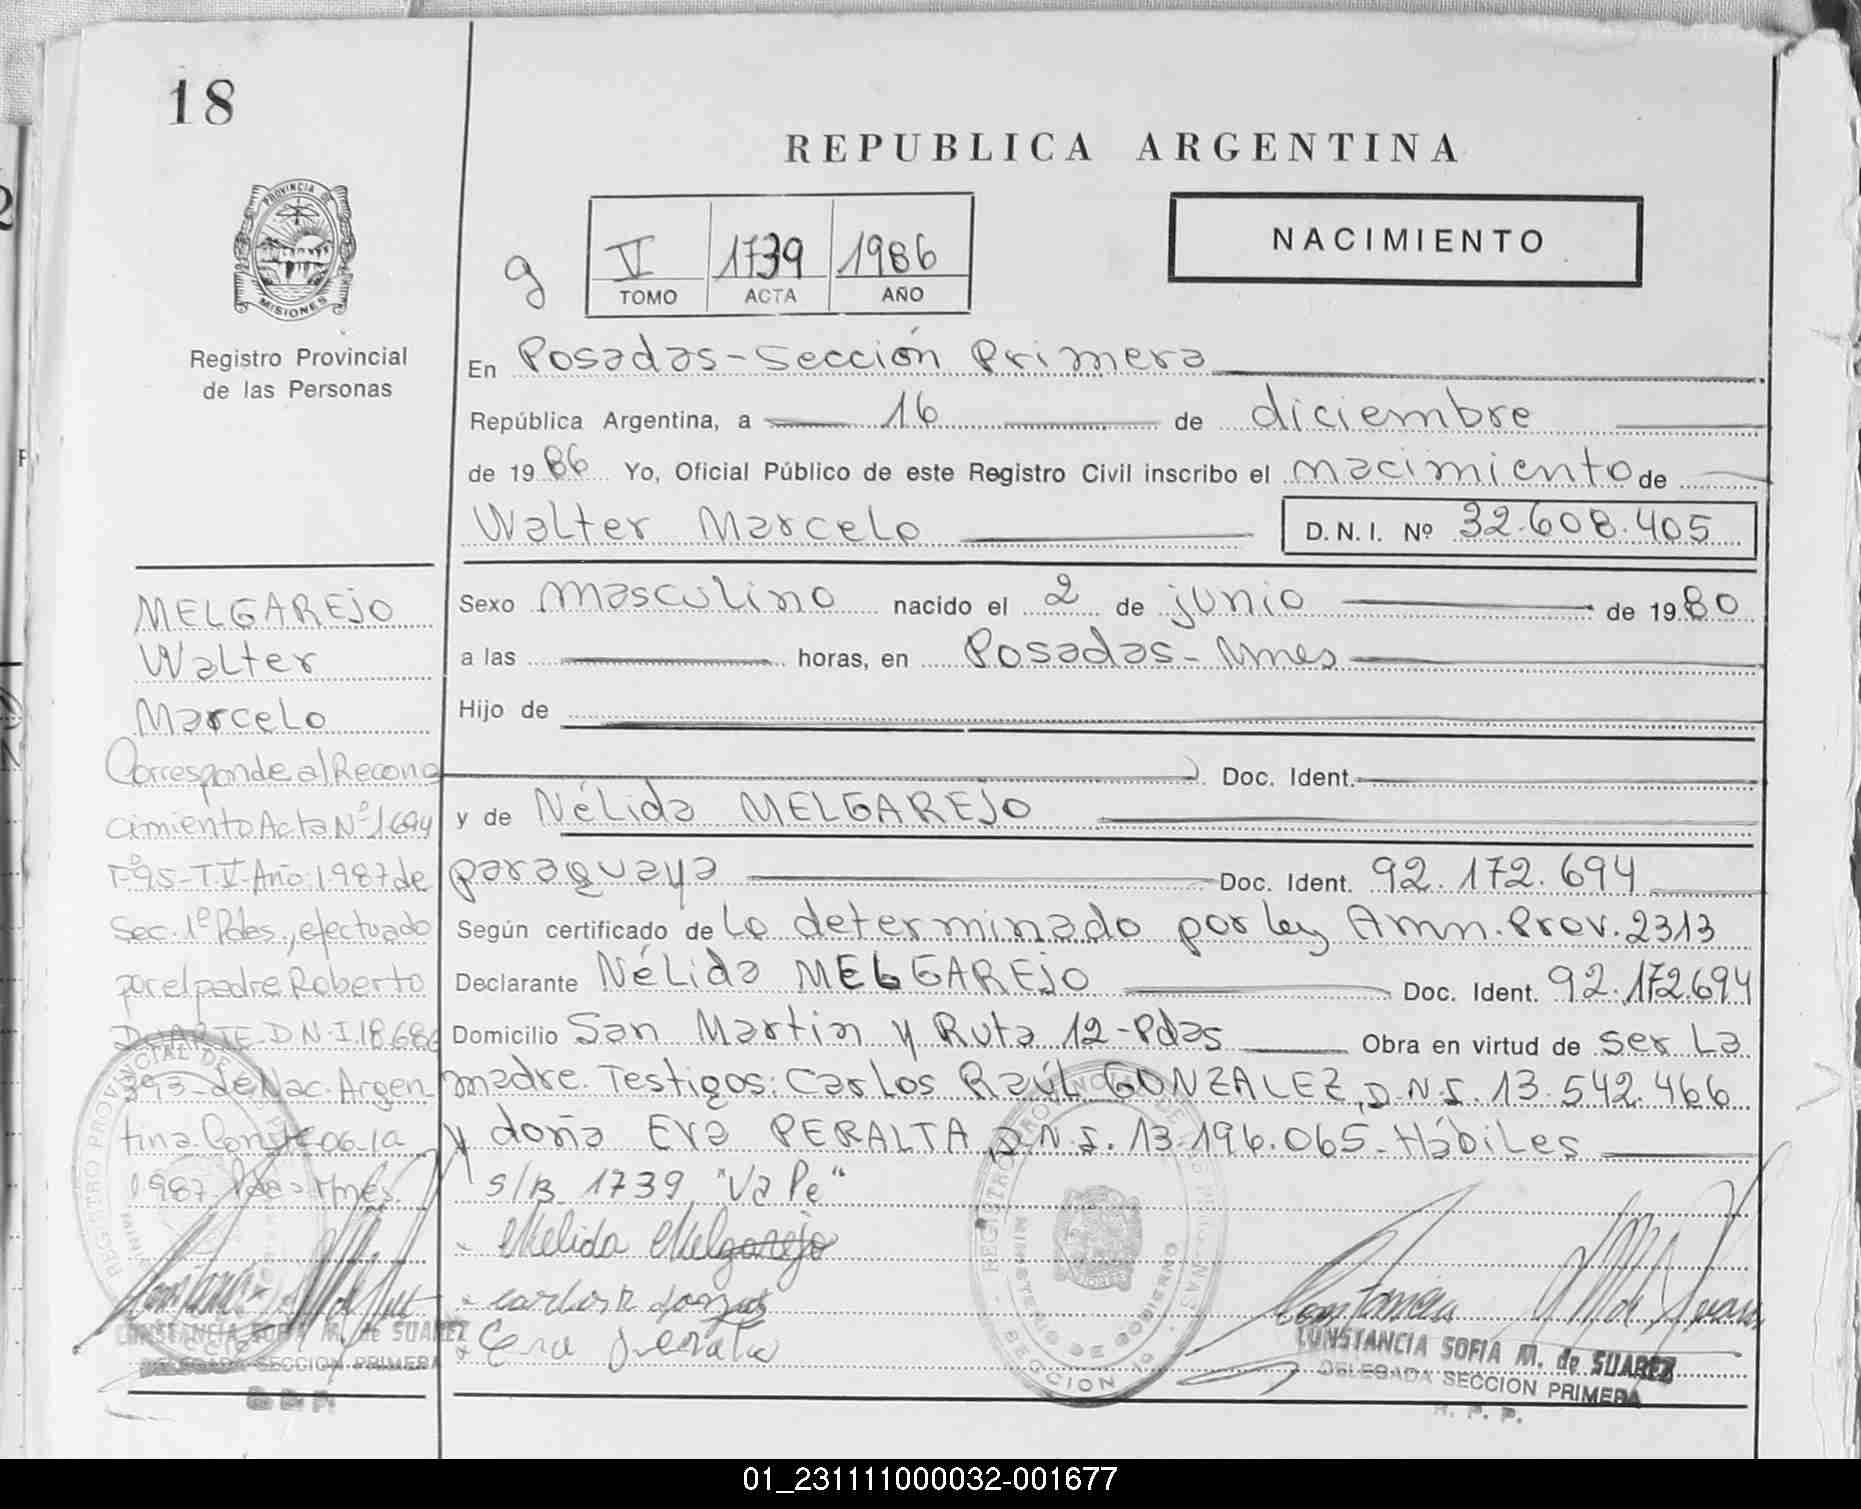 18
REPUBLICA ARGENTINA
PROVINCIA DE
MISIONES
Registro Provincial
de las Personas
g
V 1739 1986
TOMO ACTA AÑO
NACIMIENTO
En Posadas-Sección Primera
República Argentina, a 16 de diciembre
de 1986 Yo, Oficial Público de este Registro Civil inscribo el nacimiento de
Walter Marcelo D.N.I. Nº 32.608.405
Sexo masculino nacido el 2 de junio de 1980
a las horas, en Posadas-Mnes
Hijo de
Doc. Ident.
y de Nélida MELGAREJO
paraguaya Doc. Ident. 92.172.694
Según certificado de lo determinado por ley Amn. Prov. 2313
Declarante Nélida MELGAREJO Doc. Ident. 92.172.694
Domicilio San Martin y Ruta 12-Pdas Obra en virtud de ser la
madre. Testigos: Carlos Raúl GONZALEZ, D.N.I. 13.542.466
y doña Eva PERALTA D.N.I. 13.196.065-Hábiles
s/B 1739 "Va Pe"
Nelida Melgarejo
Carlos R Gonzalez
Eva Peralta
CONSTANCIA SOFIA M. de SUAREZ
DELEGADA SECCION PRIMERA
R. P. P.
MELGAREJO
Walter
Marcelo
Corresponde al Recono
cimiento Acta Nº 1694
Fº95-T.V-Año 1987 de
Sec. 1º Pdas, efectuado
por el padre Roberto
DUARTE D.N.I. 18.686
393-de Nac. Argen
tina.
1987
CONSTANCIA SOFIA M. de SUAREZ
DELEGADA SECCION PRIMERA
R. P. P.
01_231111000032-001677